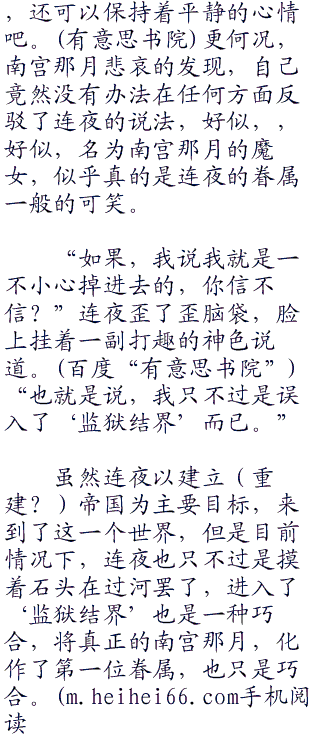 ，还可以保持着平静的心情
吧。(有意思书院)更何况，
南宫那月悲哀的发现，自己
竟然没有办法在任何方面反
驳了连夜的说法，好似，，
好似，名为南宫那月的魔
女，似乎真的是连夜的眷属
一般的可笑。
“如果，我说我就是一
不小心掉进去的，你信不
信？”连夜歪了歪脑袋，脸
上挂着一副打趣的神色说
道。(百度“有意思书院”)
“也就是说，我只不过是误
入了‘监狱结界’而已。”
虽然连夜以建立（重
建？）帝国为主要目标，来
到了这一个世界，但是目前
情况下，连夜也只不过是摸
着石头在过河罢了，进入了
‘监狱结界’也是一种巧
合，将真正的南宫那月，化
作了第一位眷属，也只是巧
合。(m.heihei66.com手机阅
读